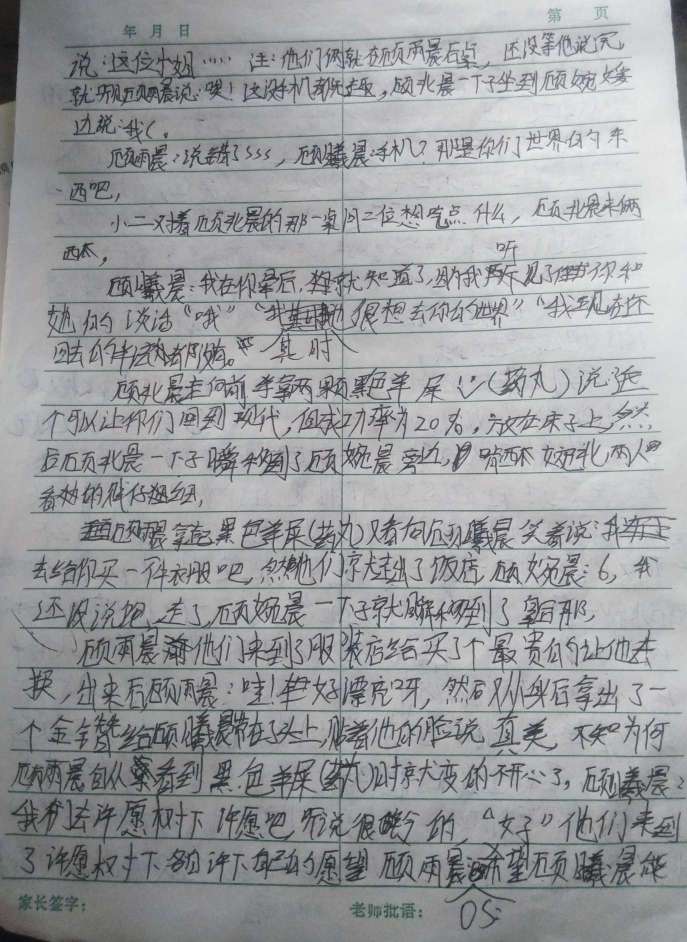 年 月 日
第 页
说:这位小姐…… 注:他们俩就在顾雨晨后桌,还没等他说完
就听见顾雨晨说:唉!这没手机都无趣,顾北晨一下子坐到顾婉晨
边说:我(。
顾雨晨:说错了sss,顾曦晨:手机?那是你们世界的东
西吧,
小二对着顾北晨的那一桌问二位想吃点什么,顾北晨来俩
西瓜,
顾曦晨:我在你桌后,就知道了,因为我听见了你和
她的说话“哦”“其时他很想去你的世界”“我
回去的
顾北晨走向前手拿两颗黑色羊屎(药丸)说这
个可以让你们回到现代,但成功率为20%,放在床子上,然
后顾北晨一下子瞬移到了顾婉晨旁边,啃西瓜 婉北两人
看
顾雨晨拿起黑色羊屎(药丸)又看向顾曦晨笑着说:我
去给你买一件衣服吧,忽然他们就走出了饭店,顾婉晨:6,我
还没说把,走了,顾婉晨一下子就瞬移到了
顾雨晨 他们来到了服装店给买了个最贵的让他去
换,出来后顾雨晨:哇!好漂亮呀,然后从身后拿出了一
个金簪给顾曦晨带在了头上,贴着他的脸说真美,不知为何
顾雨晨自从看到黑色羊屎(药丸)时就变的不开心了,顾曦晨:
我们去许愿树下许愿吧,听说很 的,“好”他们来到
了许愿树下各自许下自己的愿望 顾雨晨 希望顾曦晨能
OS:
家长签字: 老师批语: